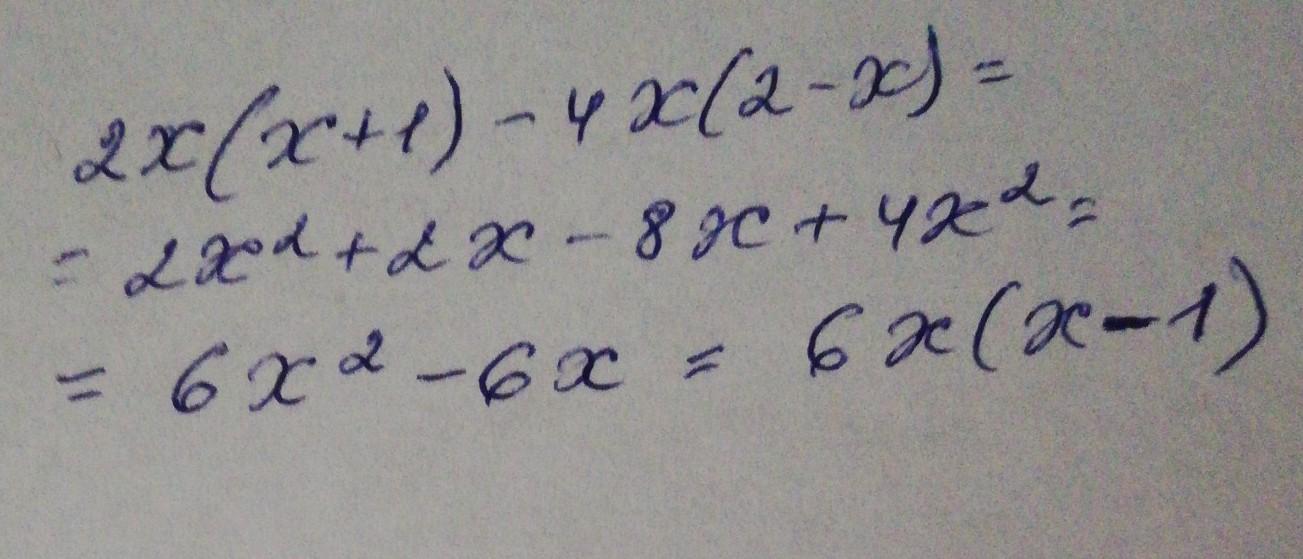 2x(x+1)-4x(2-x)=
=2x²+2x-8x+4x²=
=6x²-6x=6x(x-1)